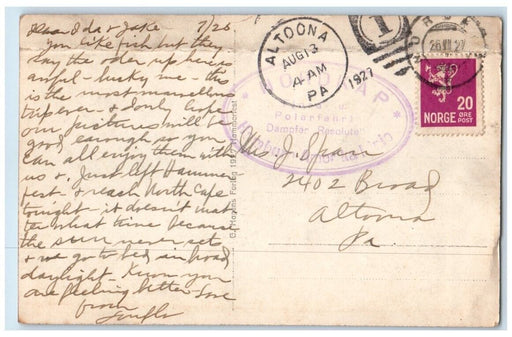 Dear Ida & Jake 7/26
You like fish but they
say the odor up here is
awful - lucky me - this
is the most marvelous
trip ever & I only hope
our pictures will
good enough so you
can all enjoy them with
us. Just left Hammer-
fest & reach North Cape
tonight - it doesn't mat-
ter what time because
the sun never sets
& we go to bed in broad
daylight. Know you
are feeling better Love
from
ALTOONA
AUG 13
4-AM
1927
PA
1
26 VII 27
20
NORGE ØRE
POST
NORDKAP
Polarfahrt
Dampfer Resolute
Mrs. J. Spear
2402 Broad
Altoona
Pa.